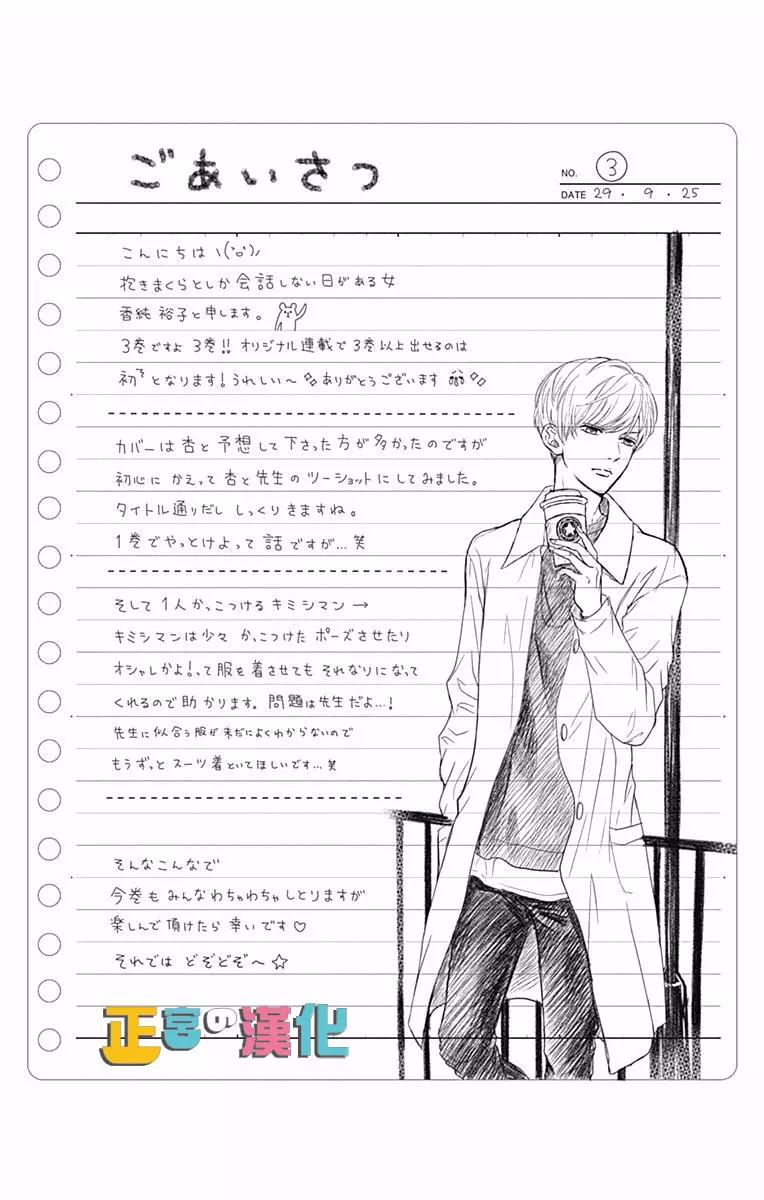 ごあいさつ
NO. ③
DATE 29・9・25
こんにちは ヽ(`ﾛ´)ﾉ
抱きまくらとしか会話しない日がある女
香純 裕子と申します。
3巻ですよ 3巻!! オリジナル連載で3巻以上出せるのは
初々となります!うれしい〜 ありがとうございます
カバーは杏と予想して下さった方が多かったのですが
初心にかえって杏と先生のツーショットにしてみました。
タイトル通りだし しっくりきますね。
1巻でやっとけよって話ですが…笑
そして1人かっこつけるキミシマン→
キミシマンは少々かっこつけたポーズさせたり
オシャレかよ!って服を着させてもそれなりになって
くれるので助かります。問題は先生だよ…!
先生に似合う服が未だによくわからないので
もうずっとスーツ着といてほしいです…笑
そんなこんなで
今巻もみんなわちゃわちゃしとりますが
楽しんで頂けたら幸いです♡
それでは どぞどぞ〜☆
正宮の漢化